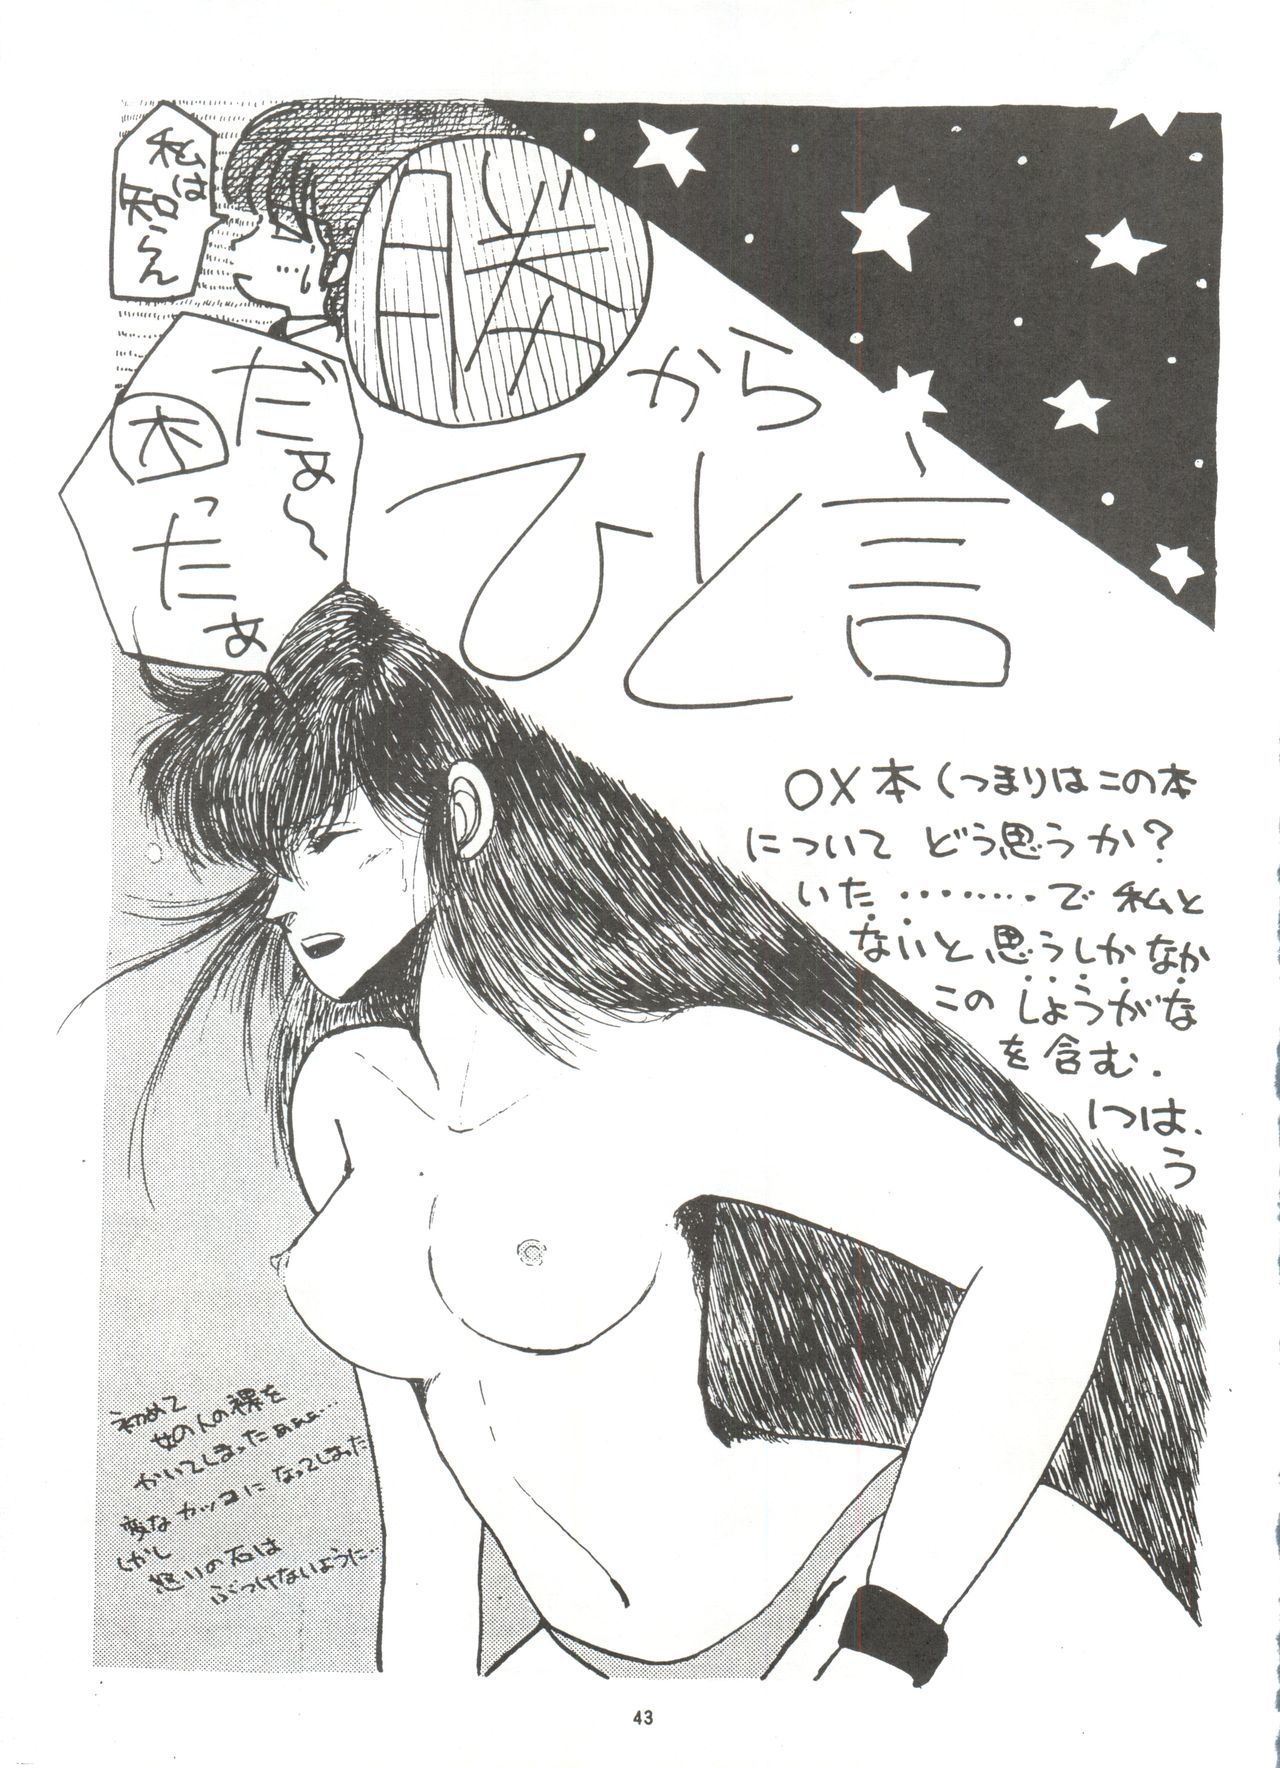 私は
知らん
だぁ〜
困ったぁ
咲
から
ひと言
〇×本(つまりはこの本
について どう思うか?
いた・・・・・・・・で 私と
ないと思うしかなか
この しょうがな
を含む.
1つは、
う
初めて
女の人の裸を
かいてしまったぁぁぁ…
変なカッコになってしまった
しかし
怒りの石は
ぶつけないように…
43